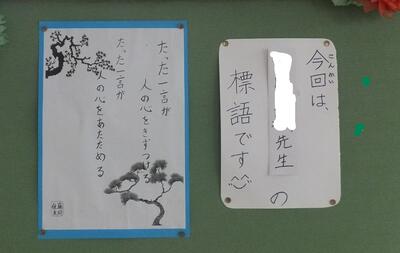 今回は、
こんかい
先生の
標語です
たった一言が
人の心をきずつける
たった一言が
人の心をあたためる